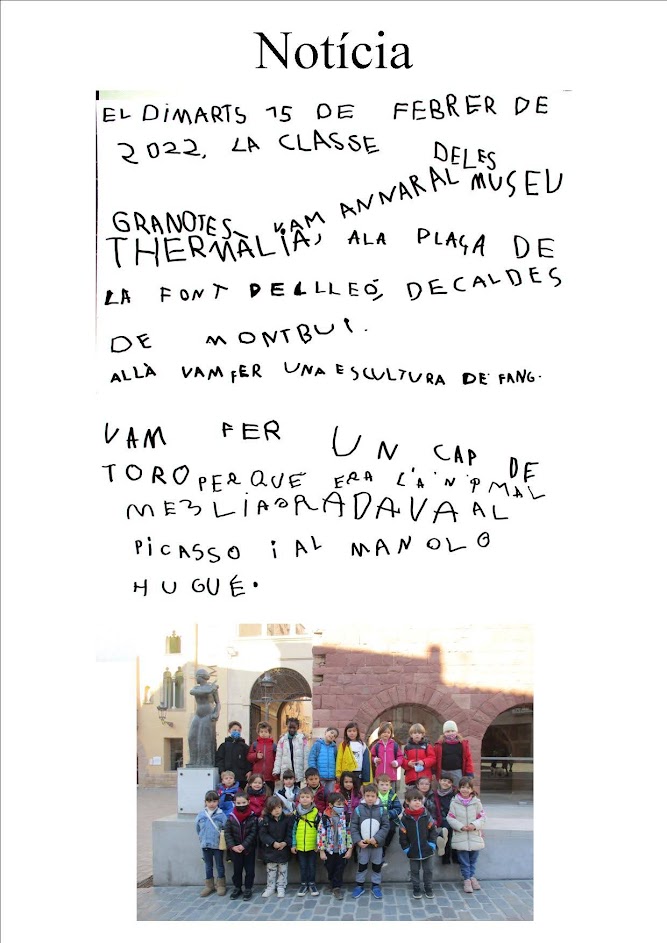 Notícia
EL DIMARTS 15 DE FEBRER DE
2022, LA CLASSE DELES
GRANOTES VAM ANNARAL MUSEU
THERMÀLIA, ALA PLAÇA DE
LA FONT DELLLEÓ, DECALDES
DE MONTBUI.
ALLÀ VAM FER UNA ESCULTURA DE FANG.
VAM FER UN CAP DE
TORO PER QUÈ ERA L'A'NIMAL
MES LI AGRADAVA AL
PICASSO i AL MANOLO
HUGUÉ.